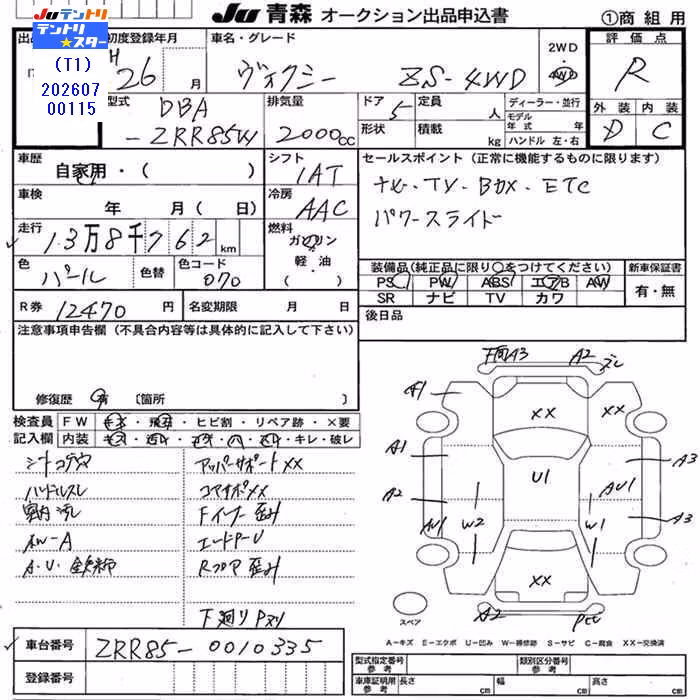 Ju 青森 オークション出品申込書 ①商組用
Juテントリ
テントリ★スター
(T1)
202607
00115
初度登録年月 H 26 月
車名・グレード ヴォクシー ZS-4WD
2WD
4WD
評価点 R
外装 D 内装 C
型式 DBA-ZRR85W
排気量 2000cc
ドア 5
形状
定員 人
積載 kg
ディーラー・並行
モデル年式 年
ハンドル 左・右
車歴 自家用・( )
シフト IAT
セールスポイント (正常に機能するものに限ります)
ナビ・TV・Bカメ・ETC
パワースライド
車検 年 月 ( 日)
冷房 AAC
走行 13万8千762km
燃料 ガソリン
軽・油
( )
色 パール 色替 色コード 070
装備品 (純正品に限り○をつけてください)
PS PW ABS エアB AW
SR ナビ TV カワ
新車保証書 有・無
R券 12470円 名変期限 月 日
後日品
注意事項申告欄 (不具合内容等は具体的に記入して下さい)
修復歴 有 〔箇所 〕
検査員記入欄
FW キズ・飛石・ヒビ割・リペア跡・×要
内装 キズ・汚れ・コゲ・穴・スレ・キレ・破レ
シートコゲ穴 アッパーサポートXX
ハンドルスレ コアサポXX
室内汚レ Fインナー歪み
AW-A エンドP-U
A・U・金具錆 Rフロア歪み
下廻りPヌリ
F下回A3 A2 ズレ
A1 XX XX
A1 U1 A3
A2 AU1
AU1 W2 W1 A3
XX
A2 Pヒビ
スペア
A-キズ E-エクボ U-凹み W-補修跡 S-サビ C-腐食 XX-交換済
車台番号 ZRR85-0010335
登録番号
型式指定番号 参考 類別区分番号 参考
車庫証明用 参考 長さ cm 幅 cm 高さ cm